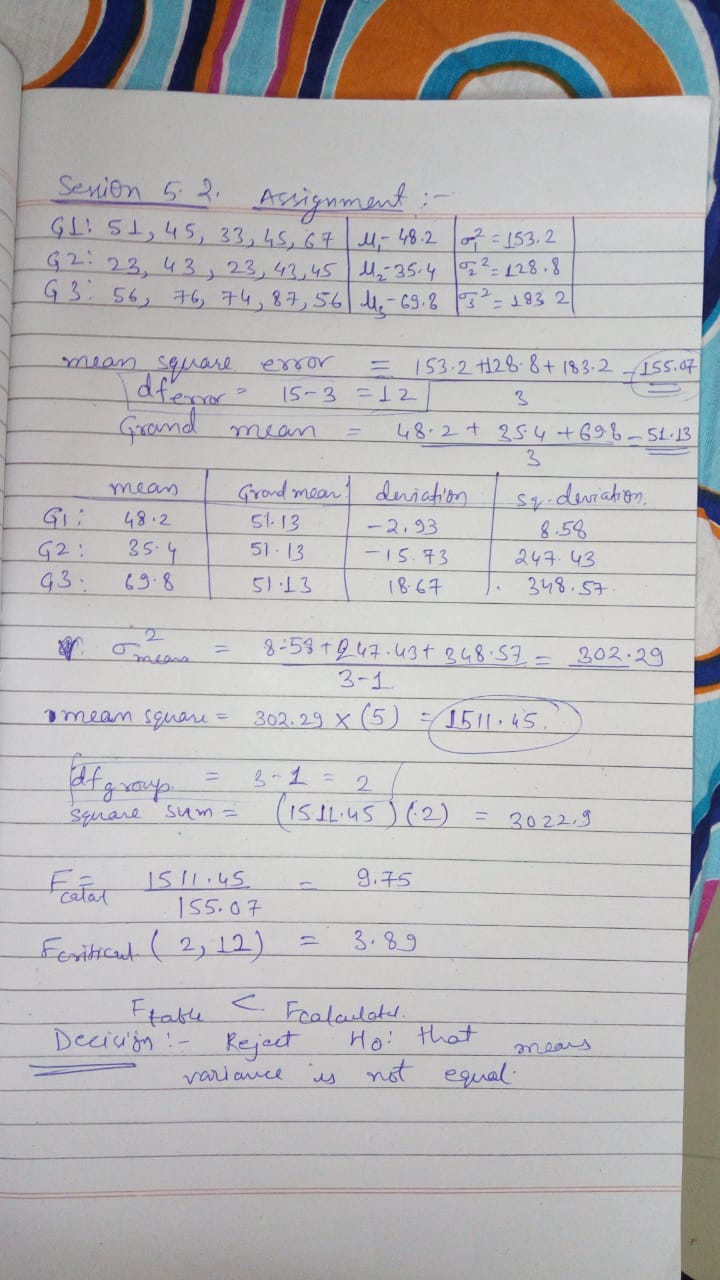 Session 5.2. Assignment :-
G1: 51, 45, 33, 45, 67 | μ1- 48.2 | σ1² = 153.2
G2: 23, 43, 23, 43, 45 | μ2- 35.4 | σ2² = 128.8
G3: 56, 76, 74, 87, 56 | μ3- 69.8 | σ3² = 183.2
mean square error = 153.2 + 128.8 + 183.2 = 155.07
3
df error = 15-3 = 12
Grand mean = 48.2 + 35.4 + 69.8 = 51.13
3
mean | Grand mean | deviation | sq. deviation.
G1: 48.2 | 51.13 | -2.93 | 8.58
G2: 35.4 | 51.13 | -15.73 | 247.43
G3: 69.8 | 51.13 | 18.67 | 348.57
σ² means = 8.58 + 247.43 + 348.57 = 302.29
3-1
mean square = 302.29 × (5) = 1511.45.
df group = 3-1 = 2
square sum = (1511.45) (2) = 3022.9
F = 1511.45 = 9.75
155.07
F critical (2, 12) = 3.89
F table < F calculated.
Decision :- Reject Ho: that means
variance is not equal.